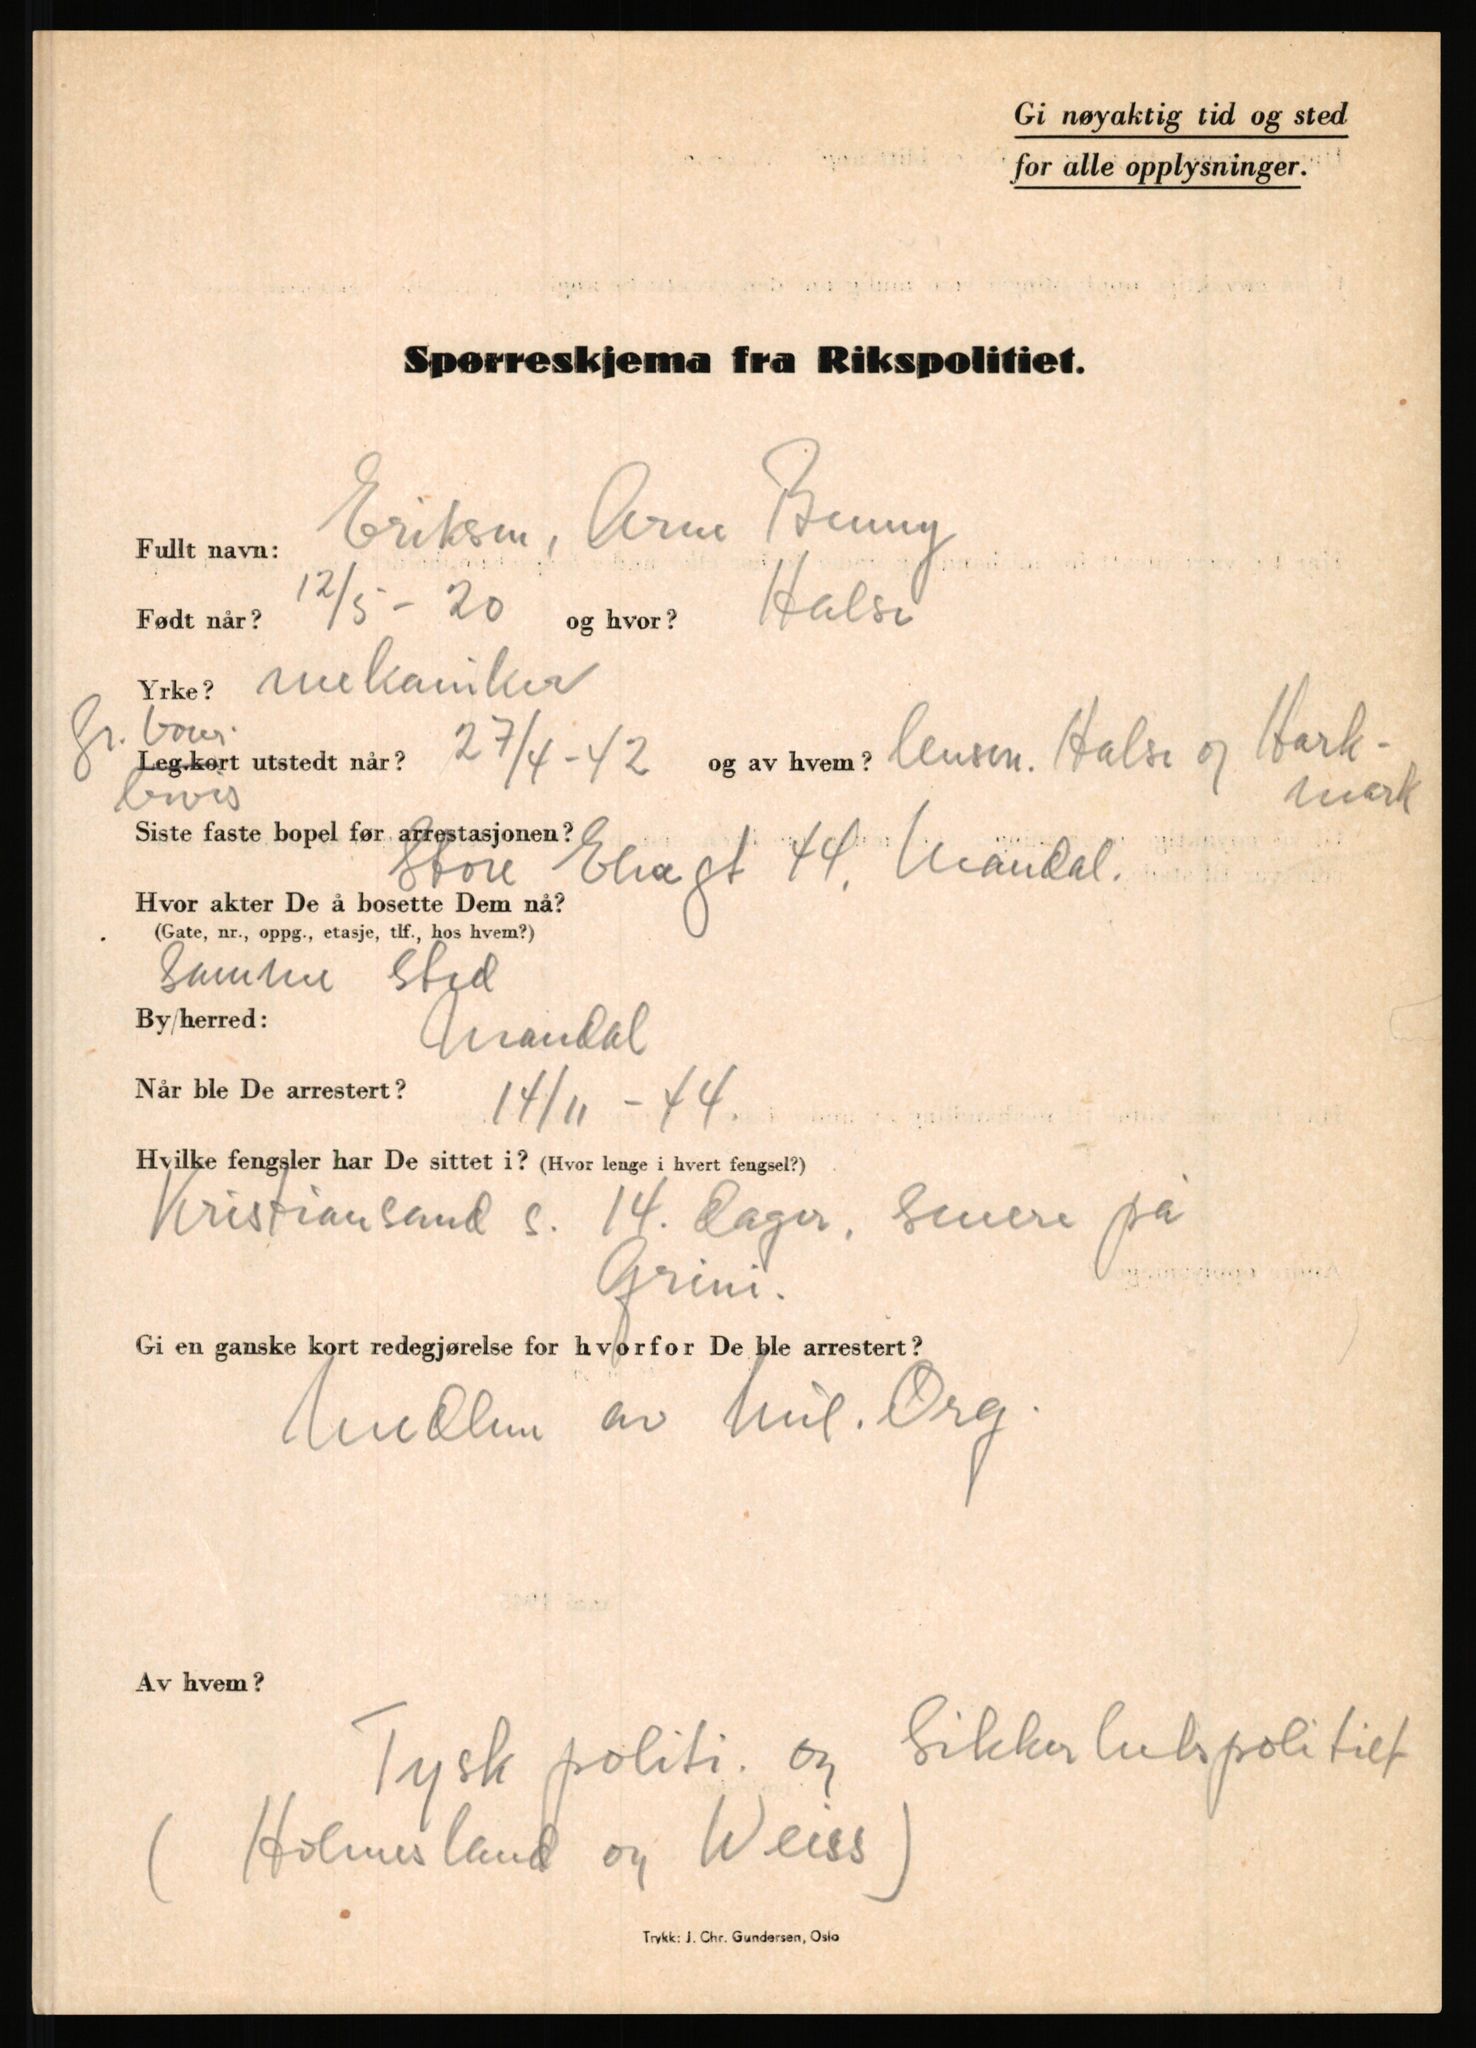 Gi nøyaktig tid og sted
for alle opplysninger.
Spørreskjema fra Rikspolitiet.
Fullt navn: Eriksen, Arne Benny
Født når? 12/5 - 20 og hvor? Halse
Yrke? mekaniker
Gr. boer
Leg.kort utstedt når? 27/4 - 42 og av hvem? lensm. Halse og Hark-
bevis mark
Siste faste bopel før arrestasjonen?
Store Elvegt 44, Mandal.
Hvor akter De å bosette Dem nå?
(Gate, nr., oppg., etasje, tlf., hos hvem?)
Samme sted
By/herred: Mandal
Når ble De arrestert? 14/11 - 44.
Hvilke fengsler har De sittet i? (Hvor lenge i hvert fengsel?)
Kristiansand S. 14. dager, senere på
Grini.
Gi en ganske kort redegjørelse for hvorfor De ble arrestert?
Medlem av Mil. Org.
Av hvem?
Tysk politi. og Sikkerhetspolitiet
(Holmesland og Weiss)
Trykk: J. Chr. Gundersen, Oslo